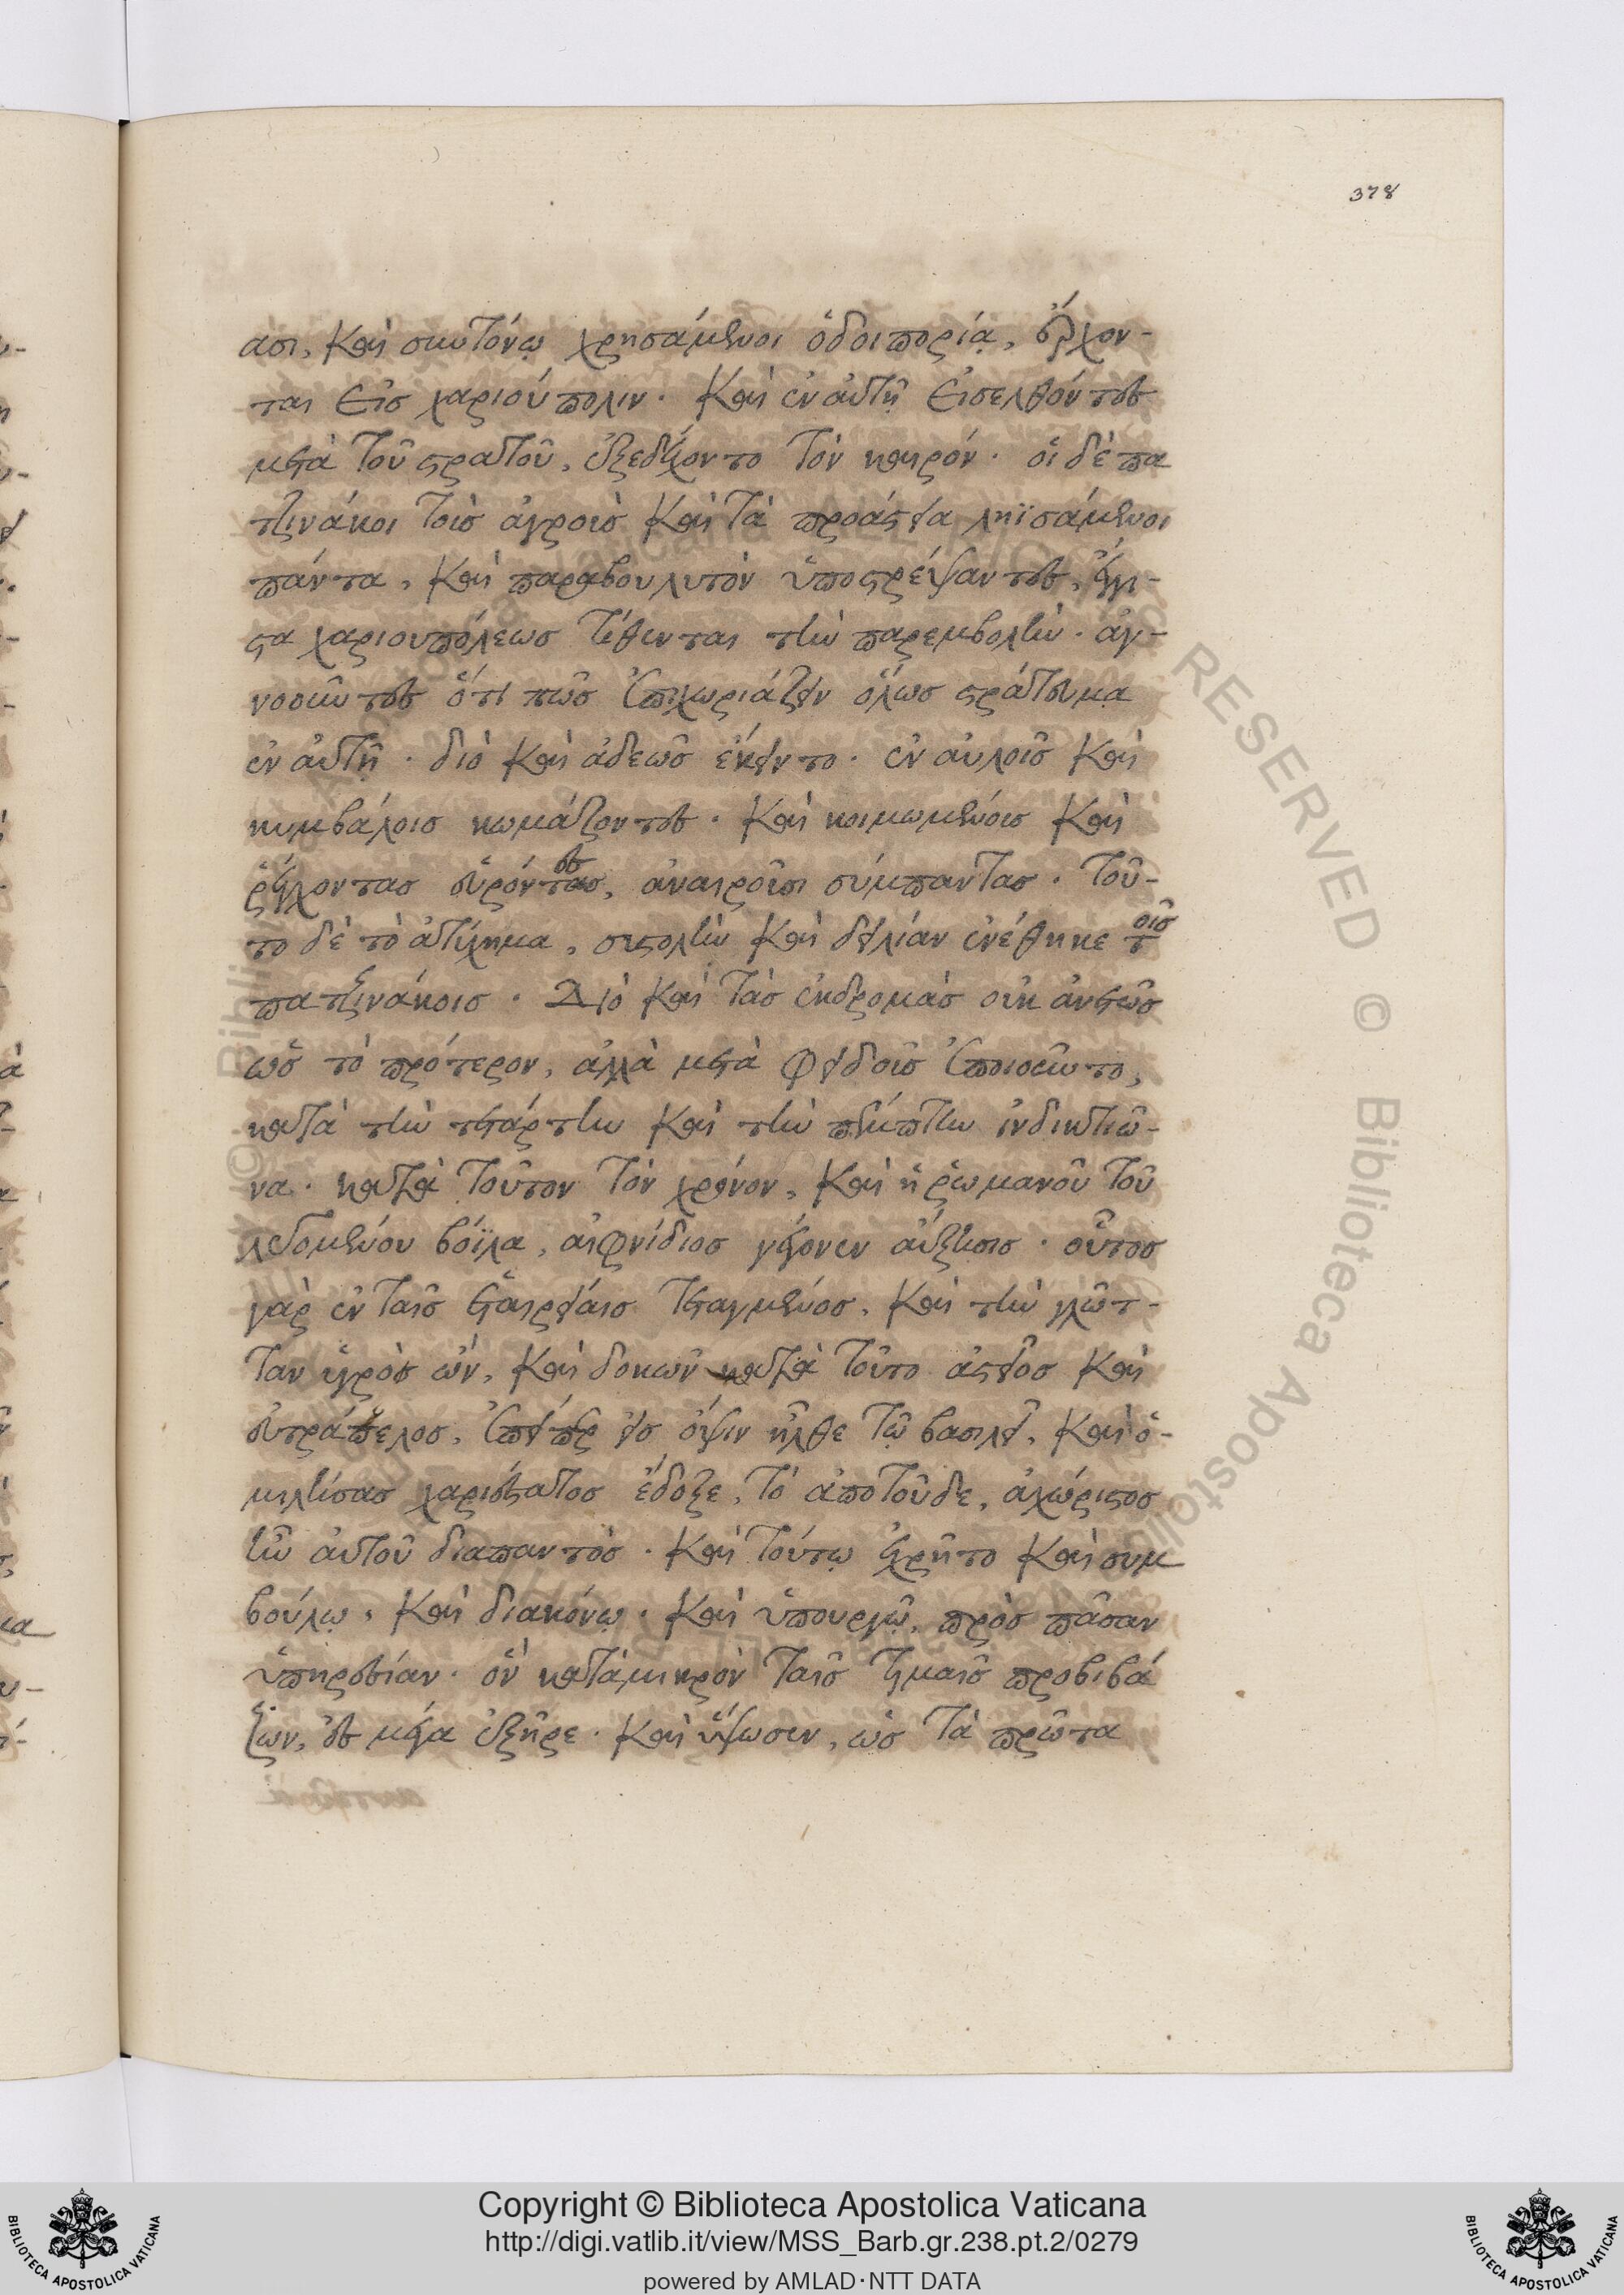 378
άσι, καὶ συντόνῳ χρησάμενοι ὁδοιπορίᾳ, ἔρχον-
ται εἰς χαριούπολιν. καὶ ἐν αὐτῇ εἰσελθόντες
μετὰ τοῦ στρατοῦ, ἐξεδέχοντο τὸν καιρόν. οἱ δὲ πα
τζινάκοι τοὶς ἀγροὶς καὶ τὰ προάστεια ληϊσάμενοι
πάντα, καὶ παραβουλυτὸν ὑποστρέψαντες, ἔγγι-
στα χαριουπόλεως τίθενται τὴν παρεμβολὴν. ἀγ-
νοοῦντες ὅτι πῶς ἐπιχωριάζειν ὅλως στράτευμα
ἐν αὐτῇ. διὸ καὶ ἀδεῶς ἔκειντο. ἐν αὐλοῖς καὶ
κυμβάλοις κωμάζοντες. καὶ κοιμωμένοις καὶ
ῥέγχοντας εὑρόντες, ἀναιροῦσι σύμπαντας. τοῦ-
το δὲ τὸ ἀτύχημα, συστολὴν καὶ δειλίαν ἐνέθηκε τοῖς
πατζινάκοις. Διὸ καὶ τὰς ἐκδρομὰς οὐκ ἀνέτως
ὡς τὸ πρότερον, ἀλλὰ μετὰ φειδοῦς ἐποιοῦντο,
κατὰ τὴν τετάρτην καὶ τὴν πέμπτην ἰνδικτιῶ-
να. κατὰ τοῦτον τὸν χρόνον, καὶ ἡ ῥωμανοῦ τοῦ
λεγομένου βόϊλα, αἰφνίδιος γέγονεν αὔξησις. οὗτος
γὰρ ἐν ταῖς ἑταιρείαις τεταγμένος, καὶ τὴν γλῶτ-
ταν ὑγρὸς ὢν, καὶ δοκῶν κατὰ τοῦτο ἀστεῖος καὶ
εὐτράπελος, ἐπείπερ εἰς ὄψιν ἦλθε τῷ βασιλεῖ, καὶ ὁ-
μιλήσας χαριέστατος ἔδοξε, τὸ ἀποτοῦδε, ἀχώριστος
ἦν αὐτοῦ διαπαντὸς. καὶ τούτῳ ἐχρῆτο καὶ συμ
βούλῳ, καὶ διακόνῳ. καὶ ὑπουργῷ, πρὸς πᾶσαν
ὑπηρεσίαν. ὃν κατὰμικρὸν ταῖς τιμαῖς προβιβά
ζων, ἐς μέγα ἐξῆρε. καὶ ὕψωσεν, ὡς τὰ πρῶτα
Copyright © Biblioteca Apostolica Vaticana
http://digi.vatlib.it/view/MSS_Barb.gr.238.pt.2/0279
powered by AMLAD·NTT DATA
BIBLIOTECA APOSTOLICA VATICANA
BIBLIOTECA APOSTOLICA VATICANA